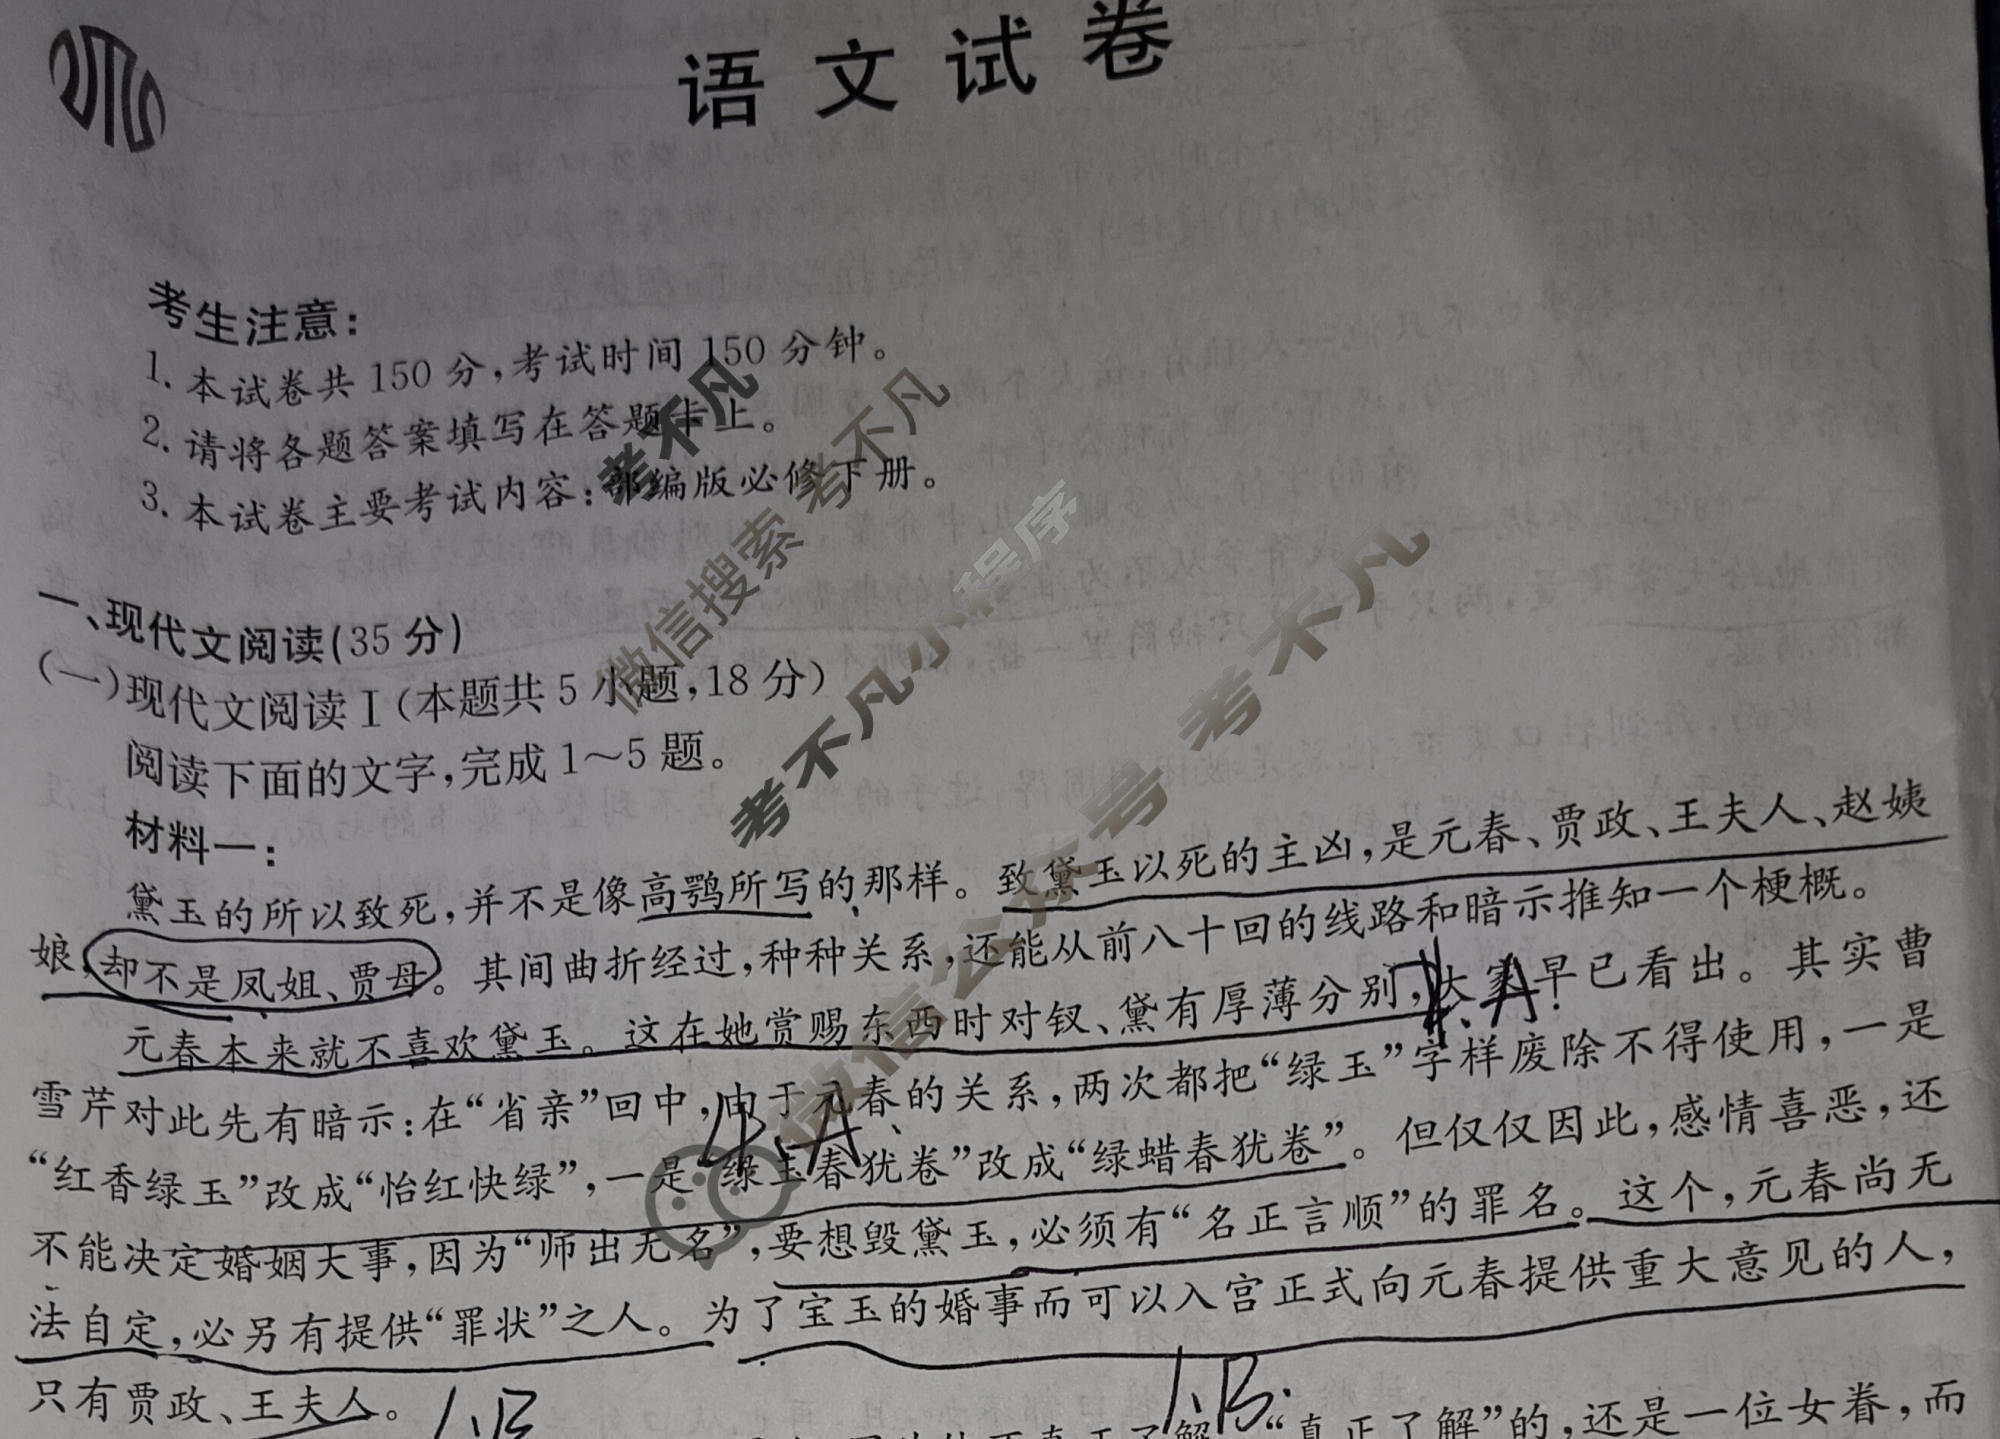 语文试卷
考生注意:
1. 本试卷共 150 分,考试时间 150 分钟。
2. 请将各题答案填写在答题卡上。
3. 本试卷主要考试内容:部编版必修下册。
一、现代文阅读(35 分)
(一)现代文阅读Ⅰ(本题共 5 小题,18 分)
阅读下面的文字,完成 1～5 题。
材料一:
黛玉的所以致死,并不是像高鹗所写的那样。致黛玉以死的主凶,是元春、贾政、王夫人、赵姨
娘,却不是凤姐、贾母。其间曲折经过,种种关系,还能从前八十回的线路和暗示推知一个梗概。
元春本来就不喜欢黛玉。这在她赏赐东西时对钗、黛有厚薄分别,大家早已看出。其实曹
雪芹对此先有暗示:在“省亲”回中,由于元春的关系,两次都把“绿玉”字样废除不得使用,一是
“红香绿玉”改成“怡红快绿”,一是“绿玉春犹卷”改成“绿蜡春犹卷”。但仅仅因此,感情喜恶,还
不能决定婚姻大事,因为“师出无名”,要想毁黛玉,必须有“名正言顺”的罪名。这个,元春尚无
法自定,必另有提供“罪状”之人。为了宝玉的婚事而可以入宫正式向元春提供重大意见的人,
只有贾政、王夫人。
真正了解 “真正了解”的,还是一位女眷,而
1.A
1.A
1.B
1.B
考不凡
微信搜索 考不凡
考不凡小程序
微信公众号 考不凡